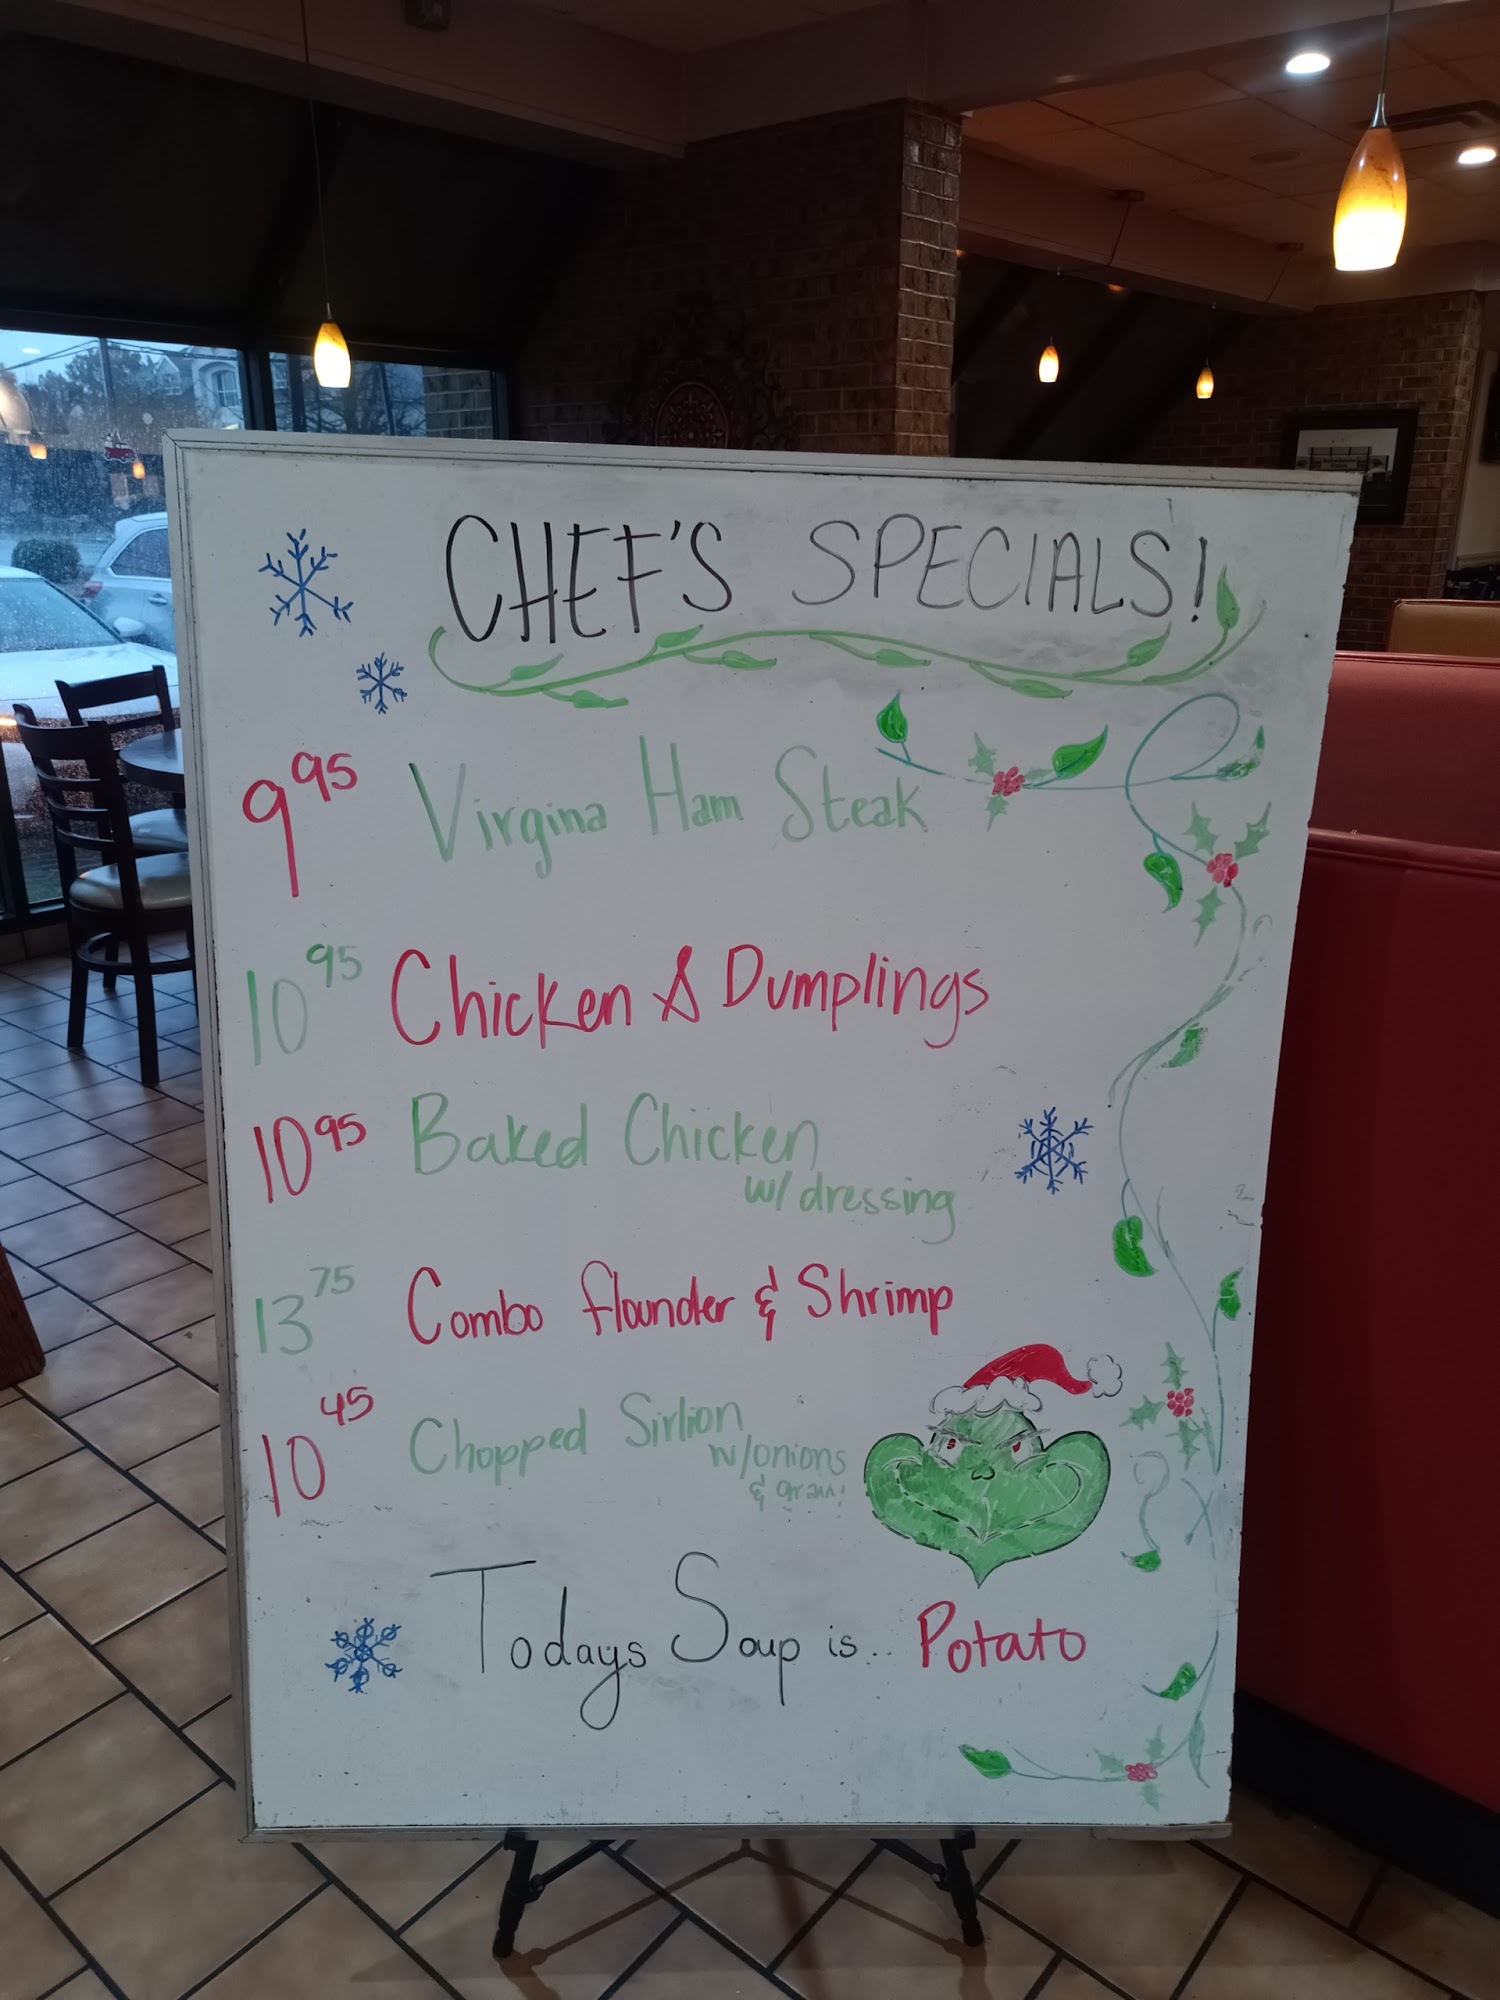 CHEF'S SPECIALS!
9 95 Virgina Ham Steak
10 95 Chicken & Dumplings
10 95 Baked Chicken
w/ dressing
13 75 Combo flounder & Shrimp
10 45 Chopped Sirlion
w/onions
&
Todays Soup is... Potato